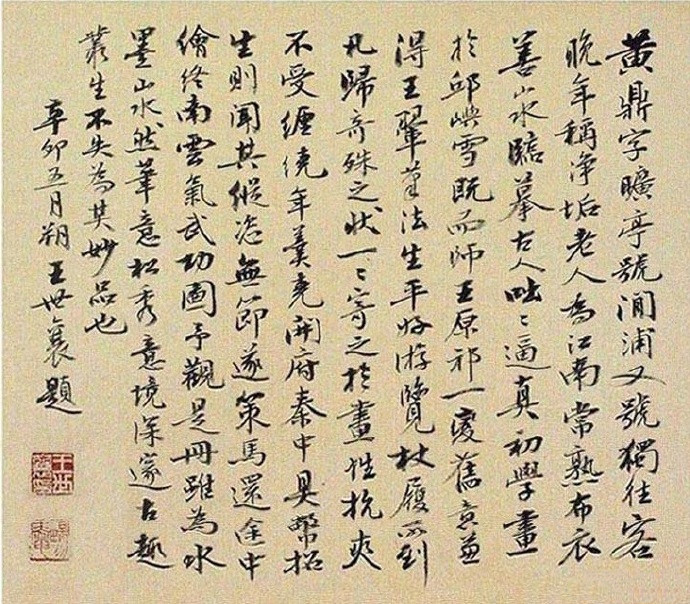 黄鼎字曠亭號澗浦又號獨往客
晚年稱淨垢老人為江南常熟布衣
善山水臨摹古人咄〻逼真初學畫
於邱嶼雪既而師王原祁一變舊意兼
得王翬筆法生平好游覽杖履所到
凡歸奇殊之狀一〻寄之於畫性抗爽
不受纏繞年羹堯開府秦中具幣招
生則聞其縱恣無節遂策馬還途中
繪終南雲氣武功圖予觀是冊雖為水
墨山水然筆意松秀意境深邃古趣
叢生不失為其妙品也
辛卯五月朔王世襄題